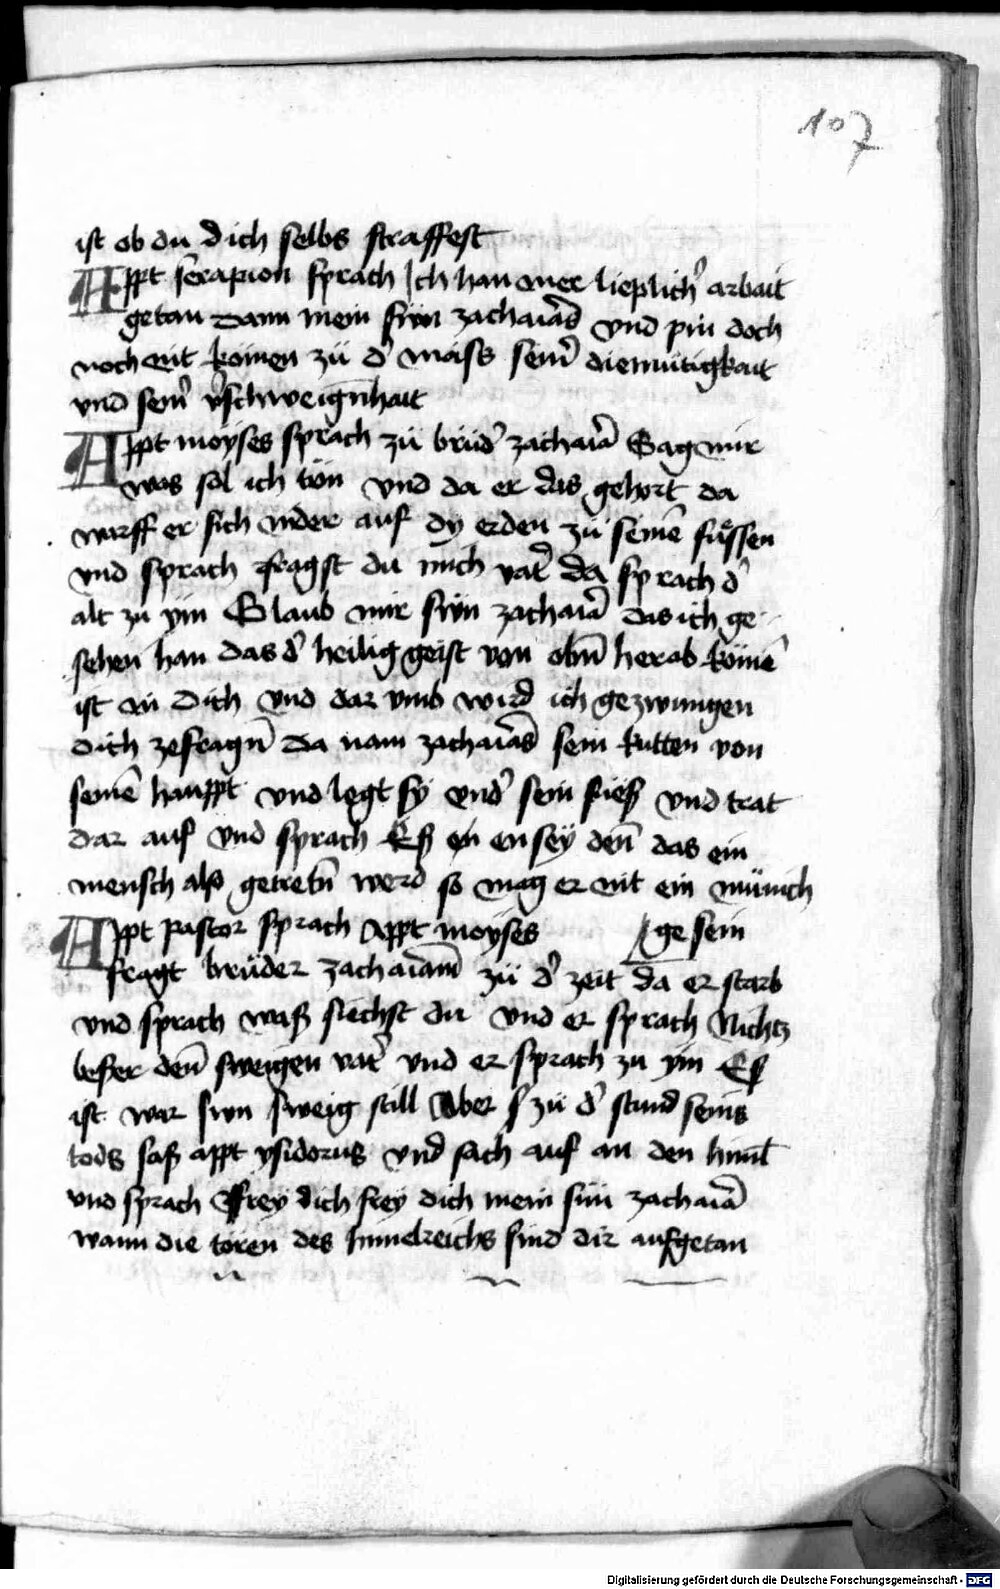 107
ist ob du dich selbs straffest
Appt serapion sprach Ich han mer lieplich' arbait
getan Dann mein sun zachaias vnd pin doch
noch nit komen zü d' mass sein' diemütigkait
vnd sein' v'schweigñhait
Appt moyses sprach zü brüd' zachaiā Sag mir
was sol ich tün vnd da er das gehort da
warff er sich nider auf dy erden zu seinē füssen
vnd sprach fragst du mich vat' da sprach d'
alt zu ym Glaub mir sün zachaiā das ich ge
sehen han das d' heilig geist von obñ herab komē
ist in Dich vnd dar vmb wird ich gezwungen
dich zefragñ Da nam zachaias sein kutten von
seinē haupt vnd legt sy vnd' sein füeß vnd trat
dar auf vnd sprach Eß en sey deñ das ein
mensch also getretñ werd so mag er nit ein münich
ge sein
Appt pastor sprach Appt moyses
fragt brüder zachaiam zü d' zeit da er starb
vnd sprach waß siechst du vnd er sprach Nichtz
besser deñ sweigen vat' vnd er sprach zu ym Eß
ist war sun sweig still Aber zü d' stund seins
tods saß appt ysidorus vnd sach auf an den himl
vnd sprach ffrey dich frey dich mein sün zachaiā
wann die toren des himelreichs sind dir aufgetan
Digitalisierung gefördert durch die Deutsche Forschungsgemeinschaft - DFG